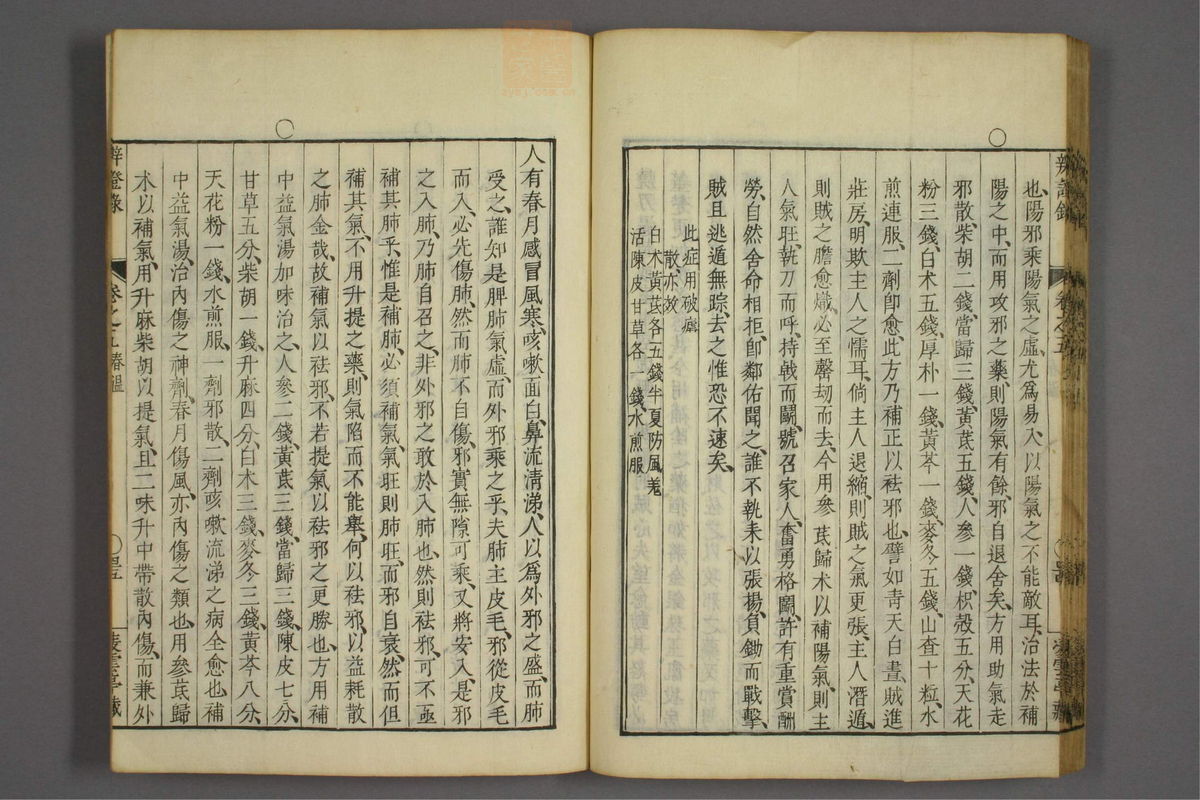 也、陽邪乘陽氣之虛、尤爲易入、以陽氣之不能敵耳、治法於補
陽之中、而用攻邪之藥、則陽氣有餘、邪自退舍矣、方用助氣走
邪散、柴胡二錢、當歸三錢、黃芪五錢、人參一錢、枳殼五分、天花
粉三錢、白术五錢、厚朴一錢、黃芩一錢、麥冬五錢、山查十粒、水
煎連服、二劑卽愈、此方乃補正以袪邪也、譬如青天白晝、賊進
莊房、明欺主人之懦耳、倘主人退縮、則賊之氣更張、主人潛遁、
則賊之膽愈熾、必至罄刧而去、今用參芪歸术以補陽氣、則主
人氣旺、執刀而呼、持戟而鬬、號召家人、奮勇格鬬、許有重賞酬
勞、自然舍命相拒、卽鄰佑聞之、誰不執耒以張揚、負鋤而戰擊、
賊且逃遁無踪、去之惟恐不速矣、
此症用破癘
散、亦效
白术黃芪各五錢半夏防風羗
活陳皮甘草各一錢、水煎服
卷之五
人有春月感冒風寒、咳嗽面白、鼻流清涕、人以爲外邪之盛、而肺
受之、誰知是脾肺氣虛、而外邪乘之乎、夫肺主皮毛、邪從皮毛
而入、必先傷肺、然而肺不自傷、邪實無隙可乘、又將安入、是邪
之入肺、乃肺自召之、非外邪之敢於入肺也、然則袪邪、可不亟
補其肺乎、惟是補肺、必須補氣、氣旺則肺旺、而邪自衰、然而但
補其氣、不用升提之藥、則氣陷而不能舉、何以袪邪、以益耗散
之肺金哉、故補氣以袪邪、不若提氣以袪邪之更勝也、方用補
中益氣湯加味治之、人參二錢、黃芪三錢、當歸三錢、陳皮七分、
甘草五分、柴胡一錢、升麻四分、白术三錢、麥冬三錢、黃芩八分、
天花粉一錢、水煎服、一劑邪散、二劑咳嗽流涕之病全愈也、補
中益氣湯、治內傷之神劑、春月傷風、亦內傷之類也、用參芪歸
术以補氣、用升麻柴胡以提氣、且二味升中帶散、內傷、而兼外
辨證錄
卷之五春温